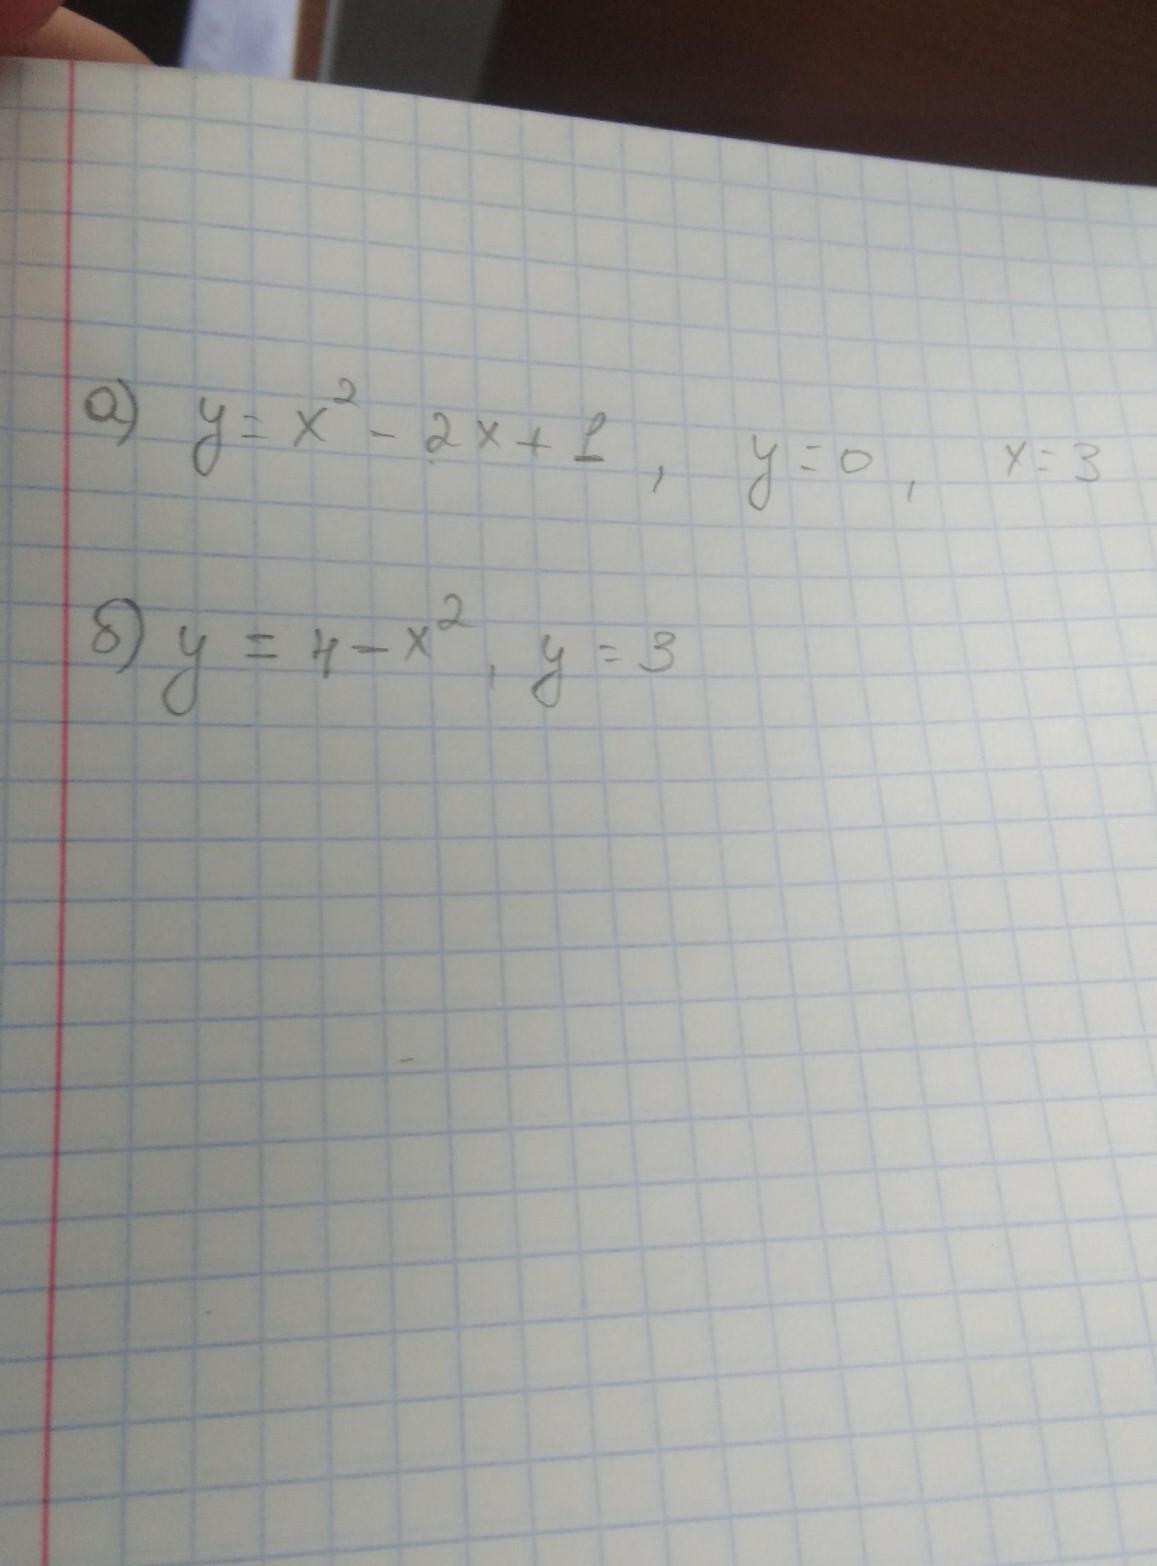 а) y = x² - 2x + 1, y = 0, x = 3
б) y = 4 - x², y = 3